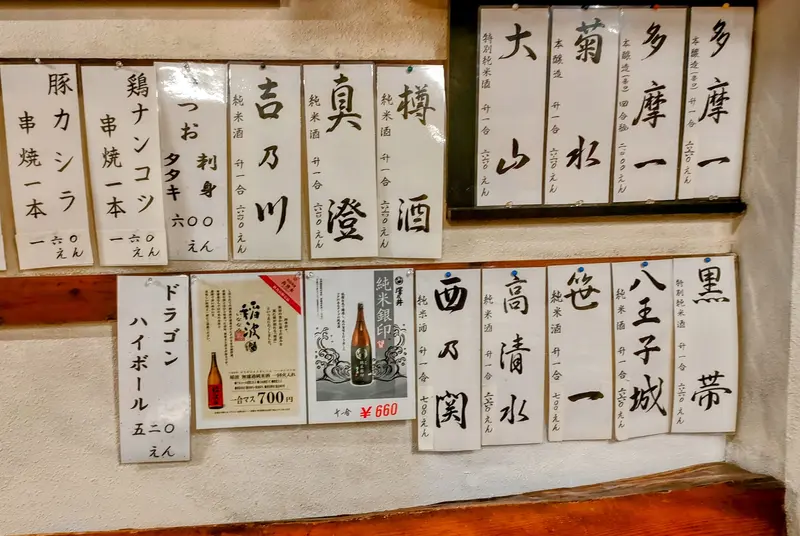 多摩一
本醸造(辛口) 升一合 六六〇えん
多摩一
本醸造(辛口) 四合瓶 二、〇〇〇えん
菊水
本醸造 升一合 六六〇えん
大山
特別純米酒 升一合 六六〇えん
樽酒
純米酒 升一合 六六〇えん
真澄
純米酒 升一合 六六〇えん
吉乃川
純米酒 升一合 六六〇えん
かつお 刺身
タタキ
六〇〇えん
鶏ナンコツ
串焼一本
一六〇えん
豚カシラ
串焼一本
一六〇えん
黒帯
特別純米酒 升一合 六六〇えん
八王子城
純米酒 升一合 六六〇えん
笹一
本醸造 升一合 七〇〇えん
高清水
純米酒 升一合 六六〇えん
西乃関
純米酒 升一合 七〇〇えん
澤乃井
純米銀印
十合 ¥660
稲波
稲波 無濾過純米酒 一回火入れ
一合マス 700円
ドラゴン
ハイボール
五二〇えん